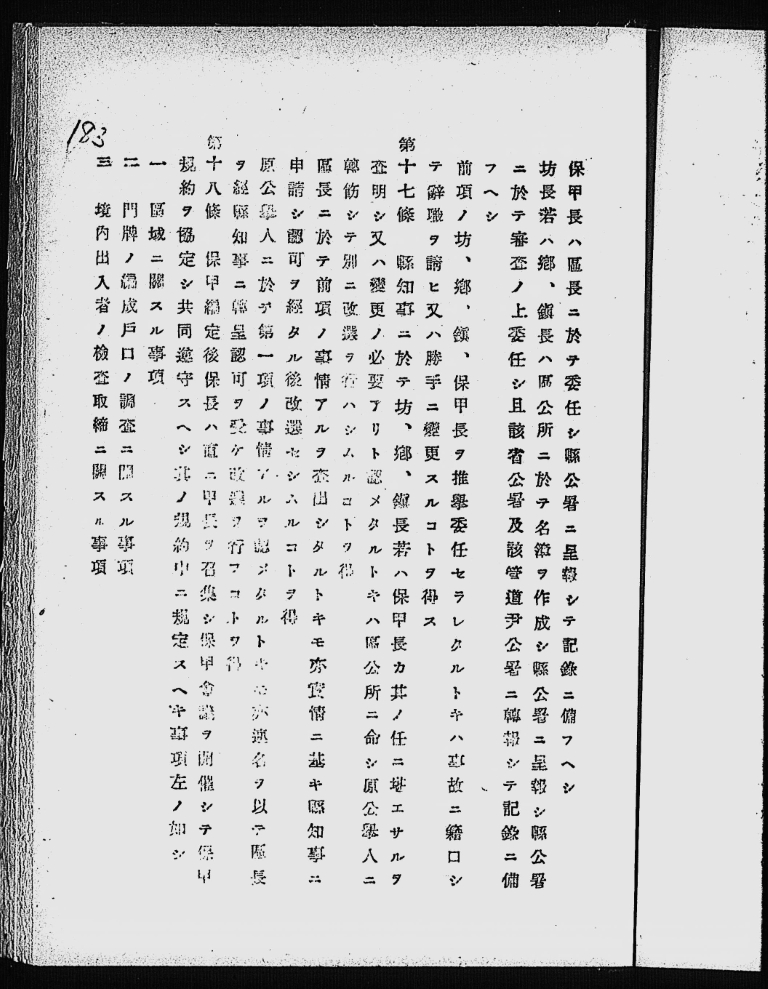 183
保甲長ハ區長ニ於テ委任シ縣公署ニ呈報シテ記錄ニ備フヘシ
坊長若ハ鄕、鎭長ハ區公所ニ於テ名簿ヲ作成シ縣公署ニ呈報シ縣公署
ニ於テ審査ノ上委任シ且該省公署及該管道尹公署ニ轉報シテ記錄ニ備
フヘシ
前項ノ坊、鄕、鎭、保甲長ヲ推擧委任セラレタルトキハ事故ニ藉口シ
テ辭職ヲ請ヒ又ハ勝手ニ變更スルコトヲ得ス
第十七條 縣知事ニ於テ坊、鄕、鎭長若ハ保甲長カ其ノ任ニ堪エサルヲ
査明シ又ハ變更ノ必要アリト認メタルトキハ區公所ニ命シ原公擧人ニ
轉飭シテ別ニ改選ヲ行ハシムルコトヲ得
區長ニ於テ前項ノ事情アルヲ査出シタルトキモ亦實情ニ基キ縣知事ニ
申請シ認可ヲ經タル後改選セシムルコトヲ得
原公擧人ニ於テ第一項ノ事情アルヲ認メタルトキモ亦連名ヲ以テ區長
ヲ經縣知事ニ轉呈認可ヲ受ケ改選ヲ行フコトヲ得
第十八條 保甲編定後保長ハ直ニ甲長ヲ召集シ保甲會議ヲ開催シテ保甲
規約ヲ協定シ共同遵守スヘシ其ノ規約中ニ規定スヘキ事項左ノ如シ
一 區域ニ關スル事項
二 門牌ノ編成戶口ノ調査ニ關スル事項
三 境內出入者ノ檢査取締ニ關スル事項